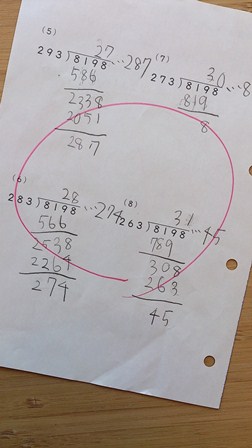 (5)
27…287
293)8198
586
2338
2051
287
(7)
30…8
273)8198
819
8
(6)
28…274
283)8198
566
2538
2264
274
(8)
31…45
263)8198
789
308
263
45